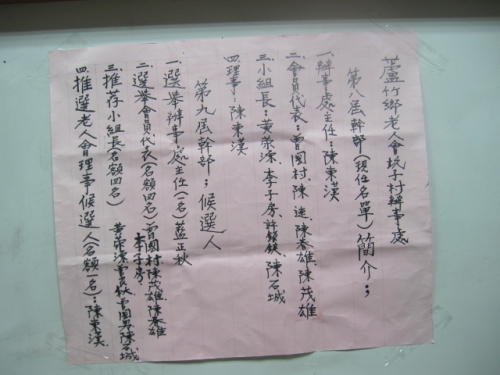 蘆竹鄉老人會坑子村辦事處
第八屆幹部(現任名單)簡介;
一.辦事處主任:陳東漢
二.會員代表:曾國村.陳 達.陳春雄.陳茂雄
三.小組長:黃榮添.李子房.陳石城
四.理事:陳東漢
第九屆幹部;候選人
一.選舉辦事處主任(一名)藍正秋
二.選舉會員代表(名額四名)曾國村.陳茂雄.陳春雄
李子房.
三.推荐小組長(名額四名)
黃榮添 曾國昇 陳石城
四.推選老人會理事候選人(名額一名):陳東漢.